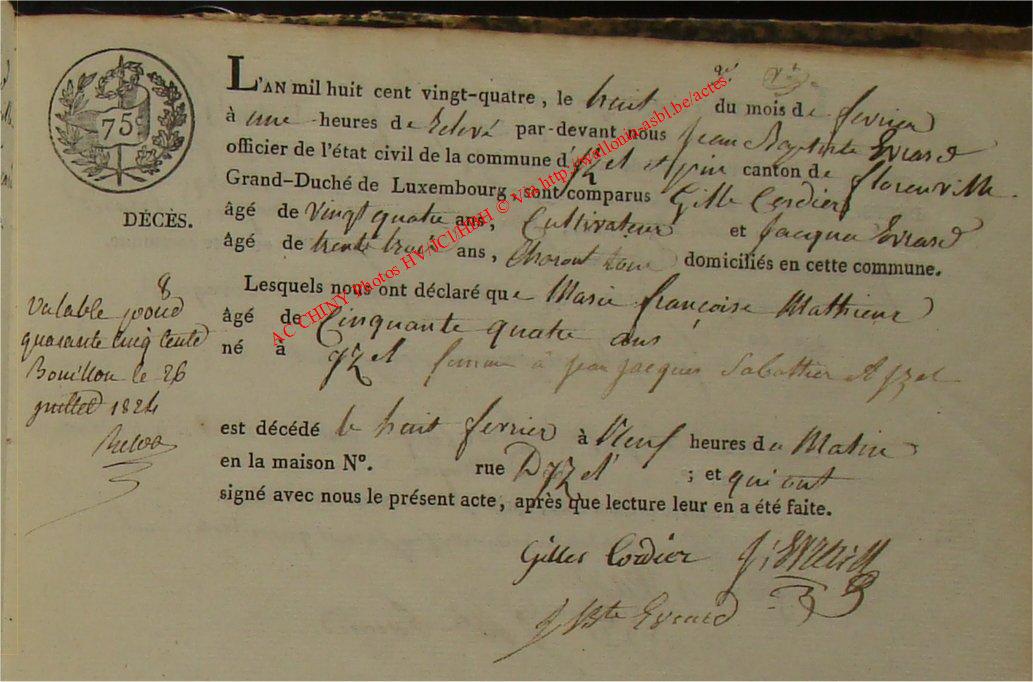 75
DÉCÈS.
L'AN mil huit cent vingt-quatre, le huit du mois de fevrier
à une heures de Relevé par-devant nous Jean Baptiste Evrard
officier de l'état civil de la commune d'yzel et pin canton de florenville
Grand-Duché de Luxembourg, sont comparus Gille Cordier
âgé de Vingt quatre ans, Cultivateur et Jacque Evrard
âgé de trente trois ans, domiciliés en cette commune.
Lesquels nous ont déclaré que Marie françoise Mathieux
âgé de Cinquante quatre ans
né à yzel femme à jean jacques Sabattier d'yzel
est décédé le huit fevrier à Neuf heures du Matin
en la maison N°. rue Dyzel ; et qui ont
signé avec nous le présent acte, après que lecture leur en a été faite.
Gilles Cordier J: EVRARD
J Bte Evrard
8
Valable pour
quarante cinq cents
Bouillon le 26
juillet 1824
AC CHINY Photos HV/JCI/HBH © via http://wallonia-asbl.be/actes